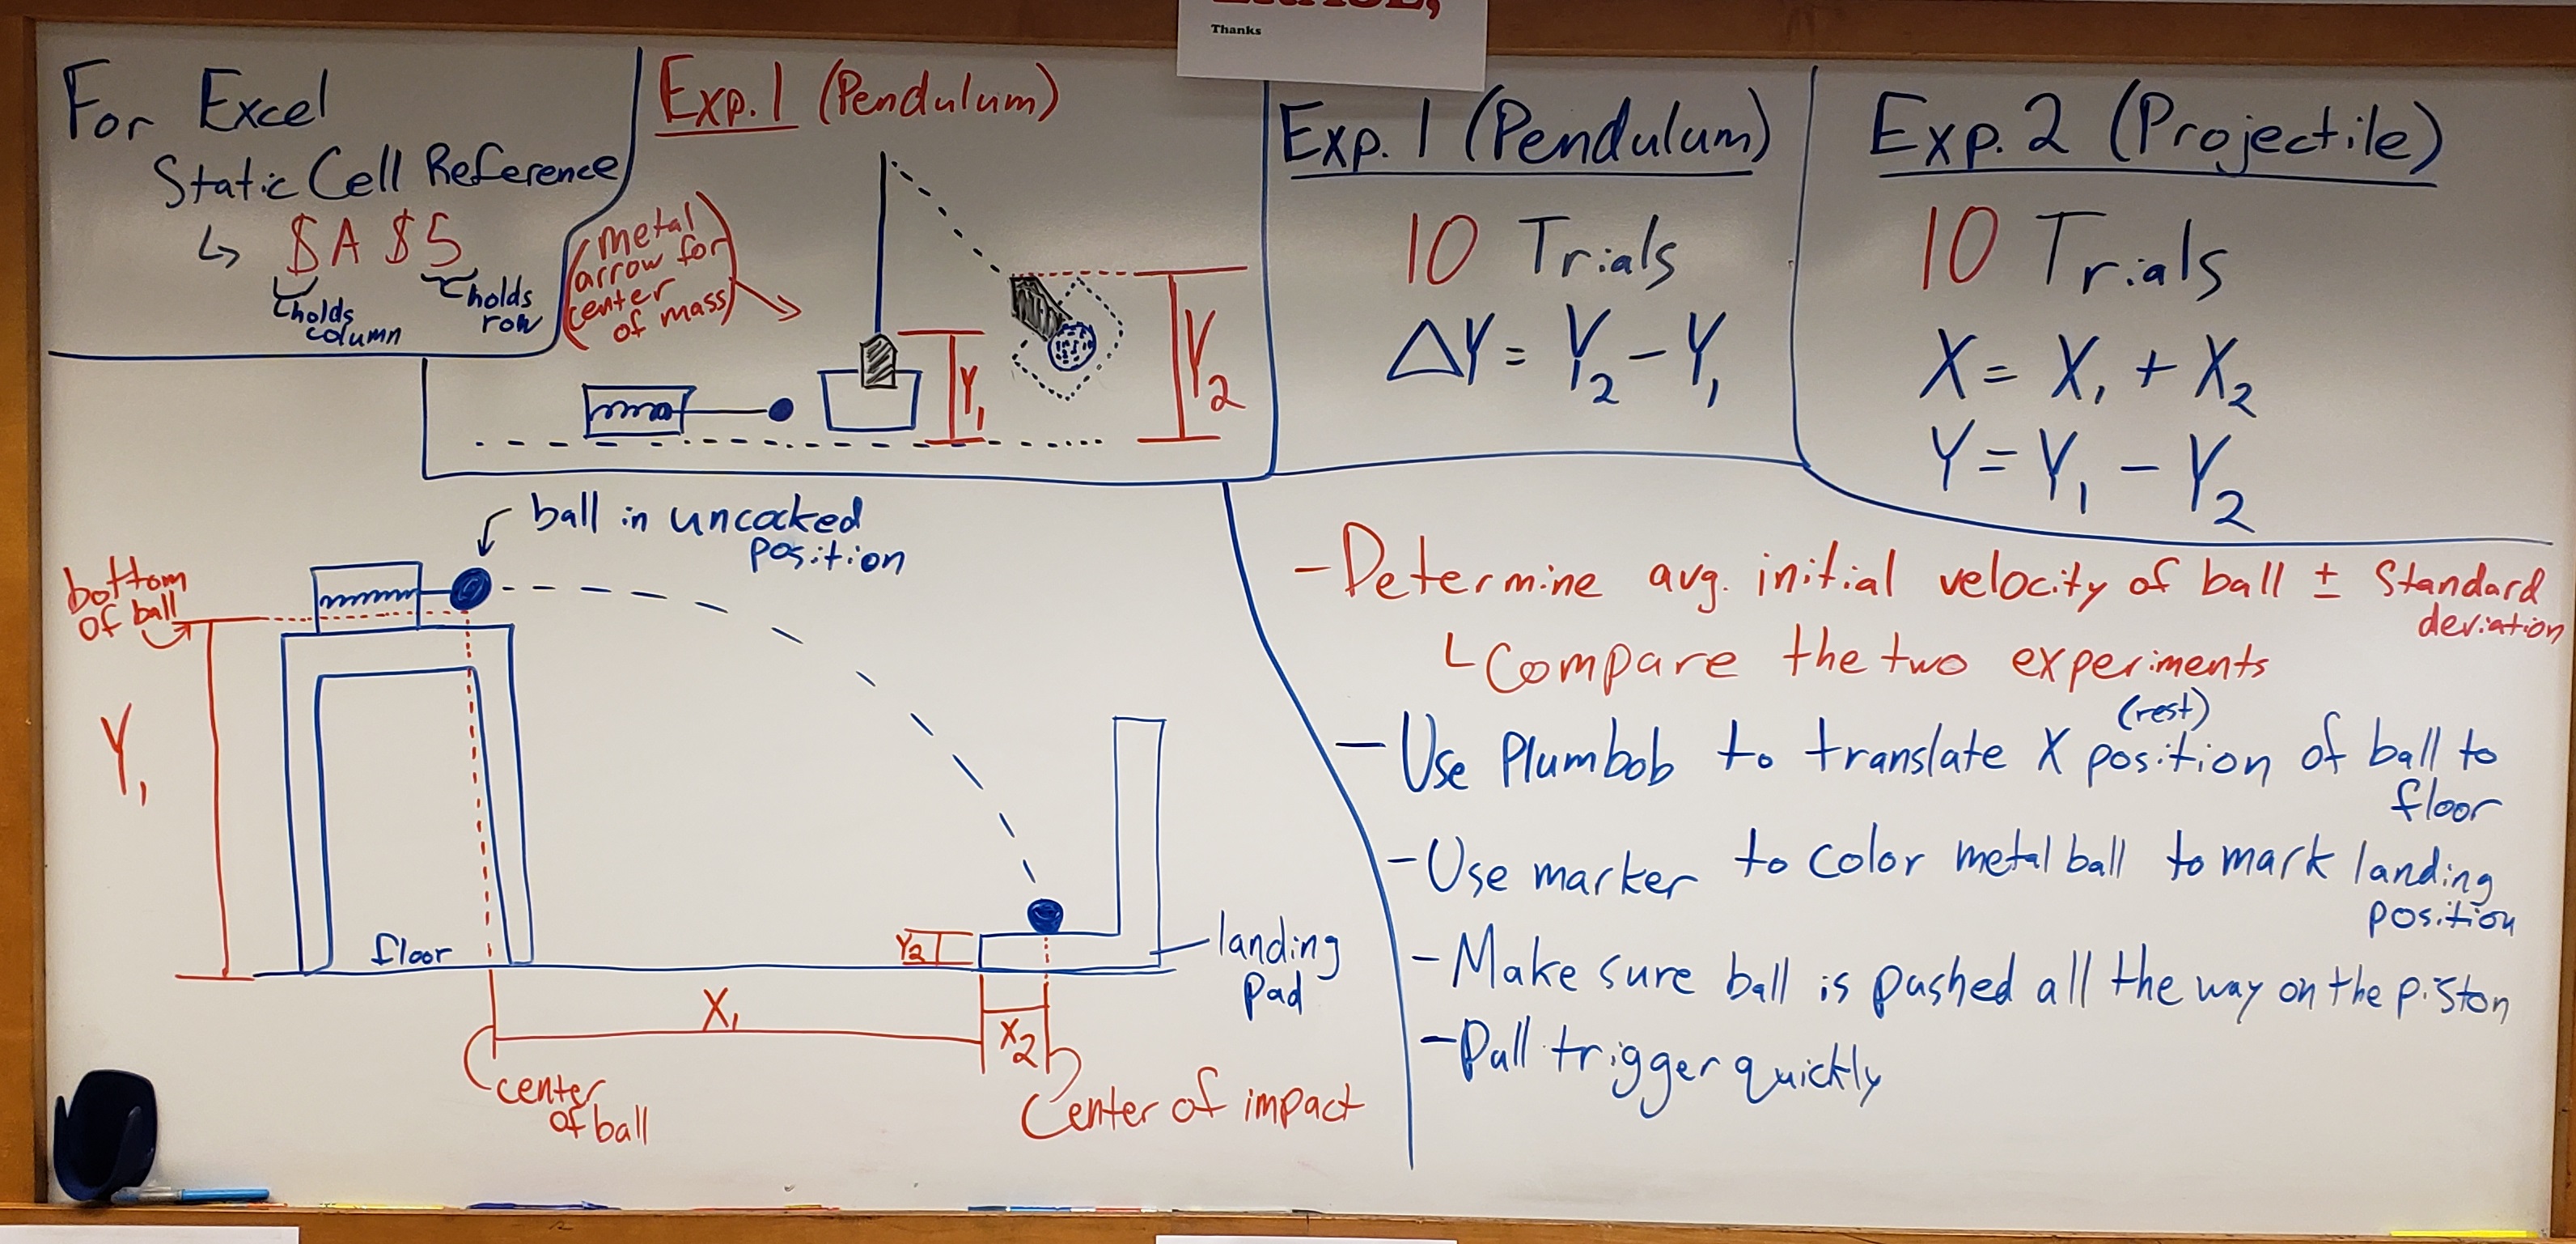 Thanks
For Excel
Static Cell Reference
↳ $A $5
holds
column
holds
row
Exp. 1 (Pendulum)
(metal
arrow for
center
of mass)
Y1
Y2
Exp. 1 (Pendulum)
10 Trials
ΔY = Y2 - Y1
Exp. 2 (Projectile)
10 Trials
X = X1 + X2
Y = Y1 - Y2
ball in uncocked
position
bottom
of ball
Y1
floor
Y2
landing
pad
X1
X2
center
of ball
Center of impact
- Determine avg. initial velocity of ball ± Standard
deviation
Compare the two experiments
(rest)
- Use Plumbob to translate X position of ball to
floor
- Use marker to color metal ball to mark landing
position
- Make sure ball is pushed all the way on the piston
- Pull trigger quickly